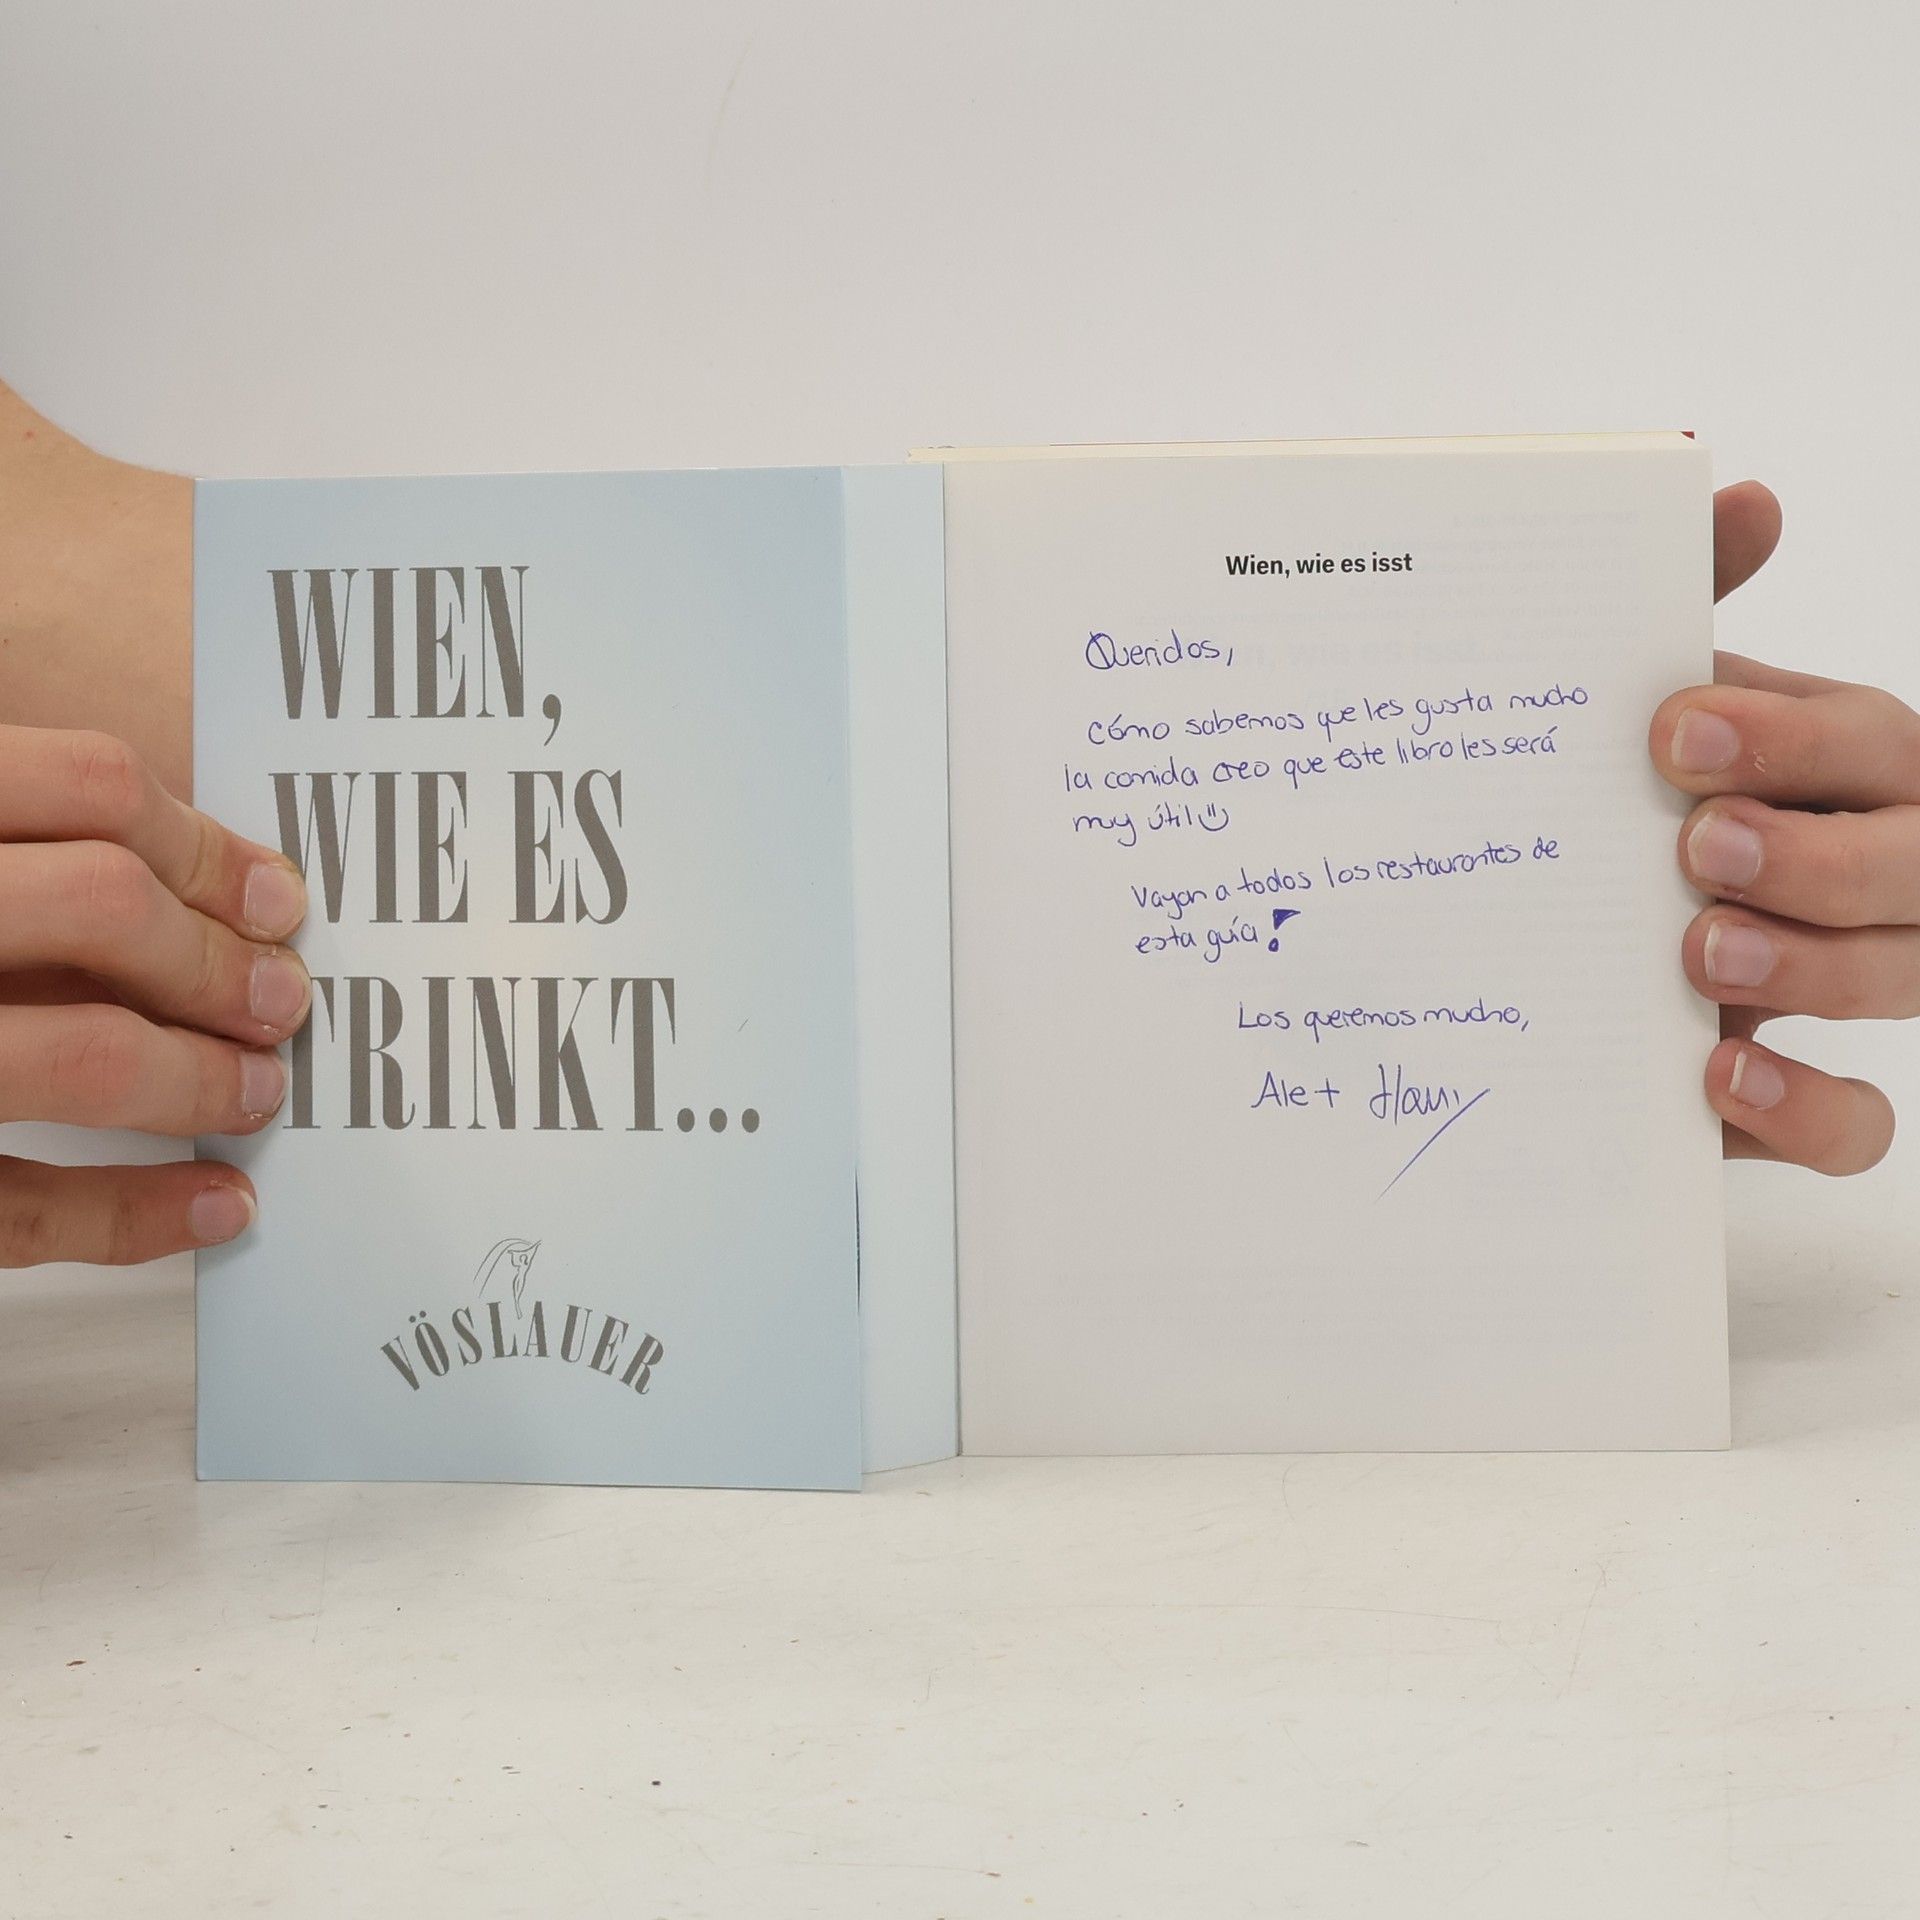 WIEN,
WIE ES
TRINKT...
VÖSLAUER
Wien, wie es isst
Queridos,
cómo sabemos que les gusta mucho
la comida creo que este libro les será
muy útil
Vayan a todos los restaurantes de
esta guía!
Los queremos mucho,
Ale +